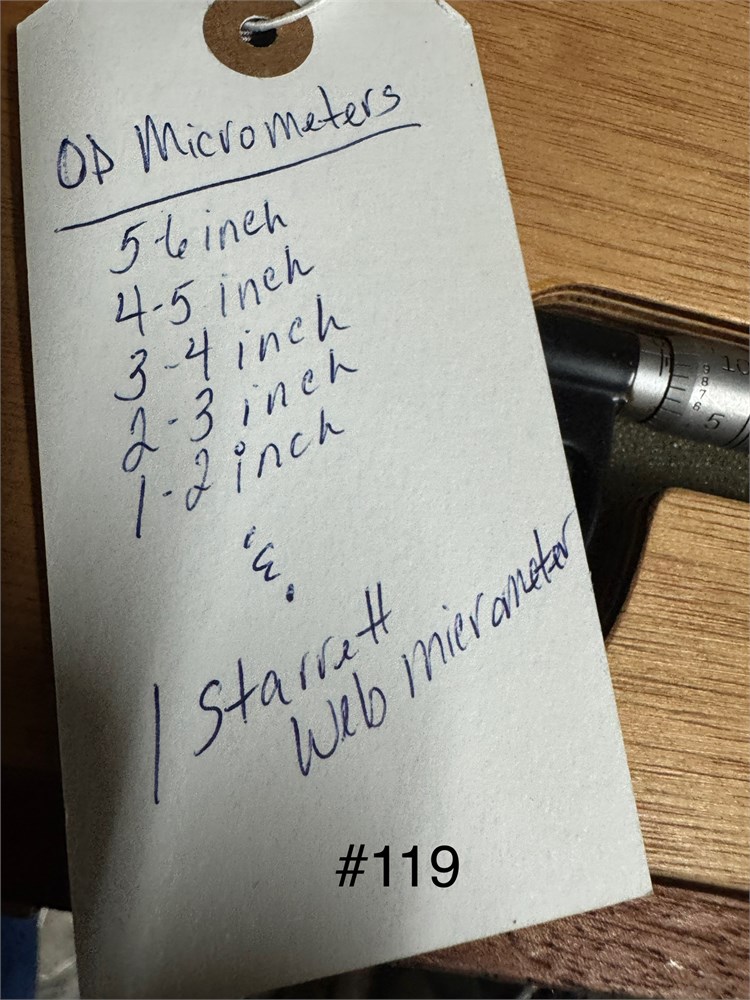 OD Micrometers
5-6 inch
4-5 inch
3-4 inch
2-3 inch
1-2 inch
&
1 Starrett
Web micrometer
#119
10
9
8
7
6
5